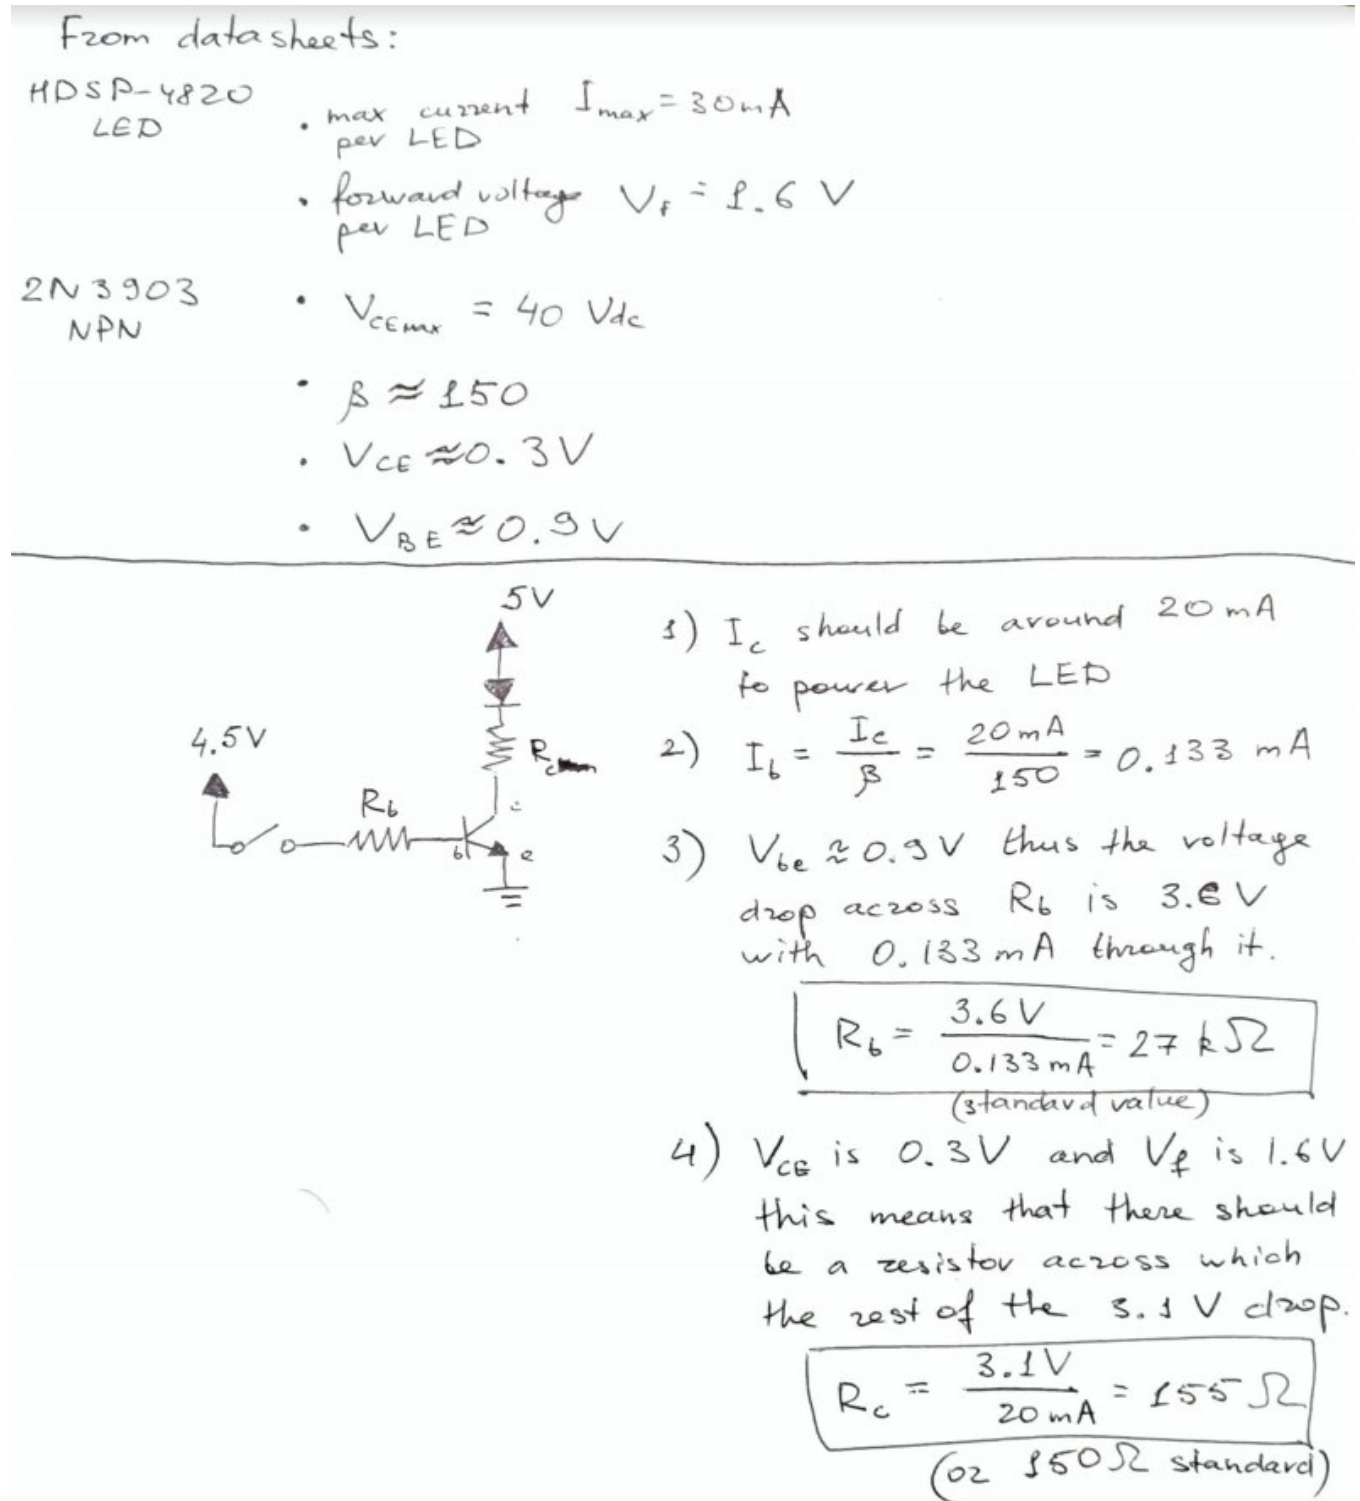 From datasheets:
HDSP-4820
LED
• max current I_max = 30mA
per LED
• forward voltage V_f = 1.6 V
per LED
2N3903
NPN
• V_CEmax = 40 Vdc
• β ≈ 150
• V_CE ≈ 0.3V
• V_BE ≈ 0.9V
5V
4.5V
R_c
R_b
c
b
e
1) I_c should be around 20mA
to power the LED
2) I_b = I_c / β = 20mA / 150 = 0.133 mA
3) V_be ≈ 0.9V thus the voltage
drop across R_b is 3.6V
with 0.133mA through it.
R_b = 3.6V / 0.133mA = 27 kΩ
(standard value)
4) V_CE is 0.3V and V_f is 1.6V
this means that there should
be a resistor across which
the rest of the 3.1 V drop.
R_c = 3.1V / 20mA = 155 Ω
(or 150Ω standard)